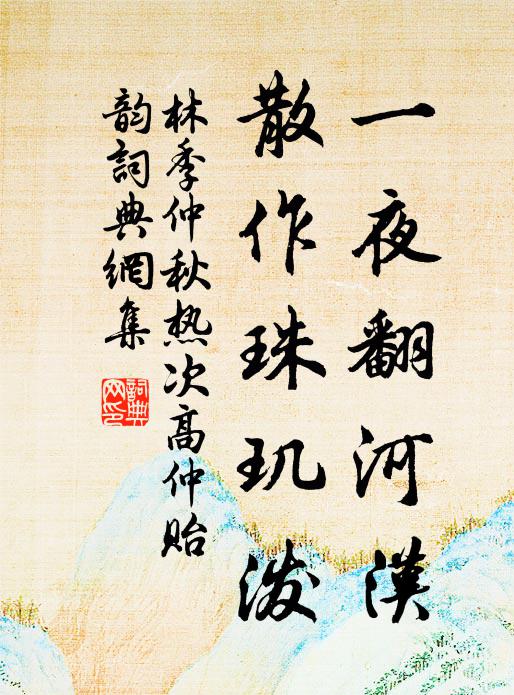 一夜翻河漢
散作珠玑潑
林季仲秋热次高仲贻
韵詞典網集
詞典
网印